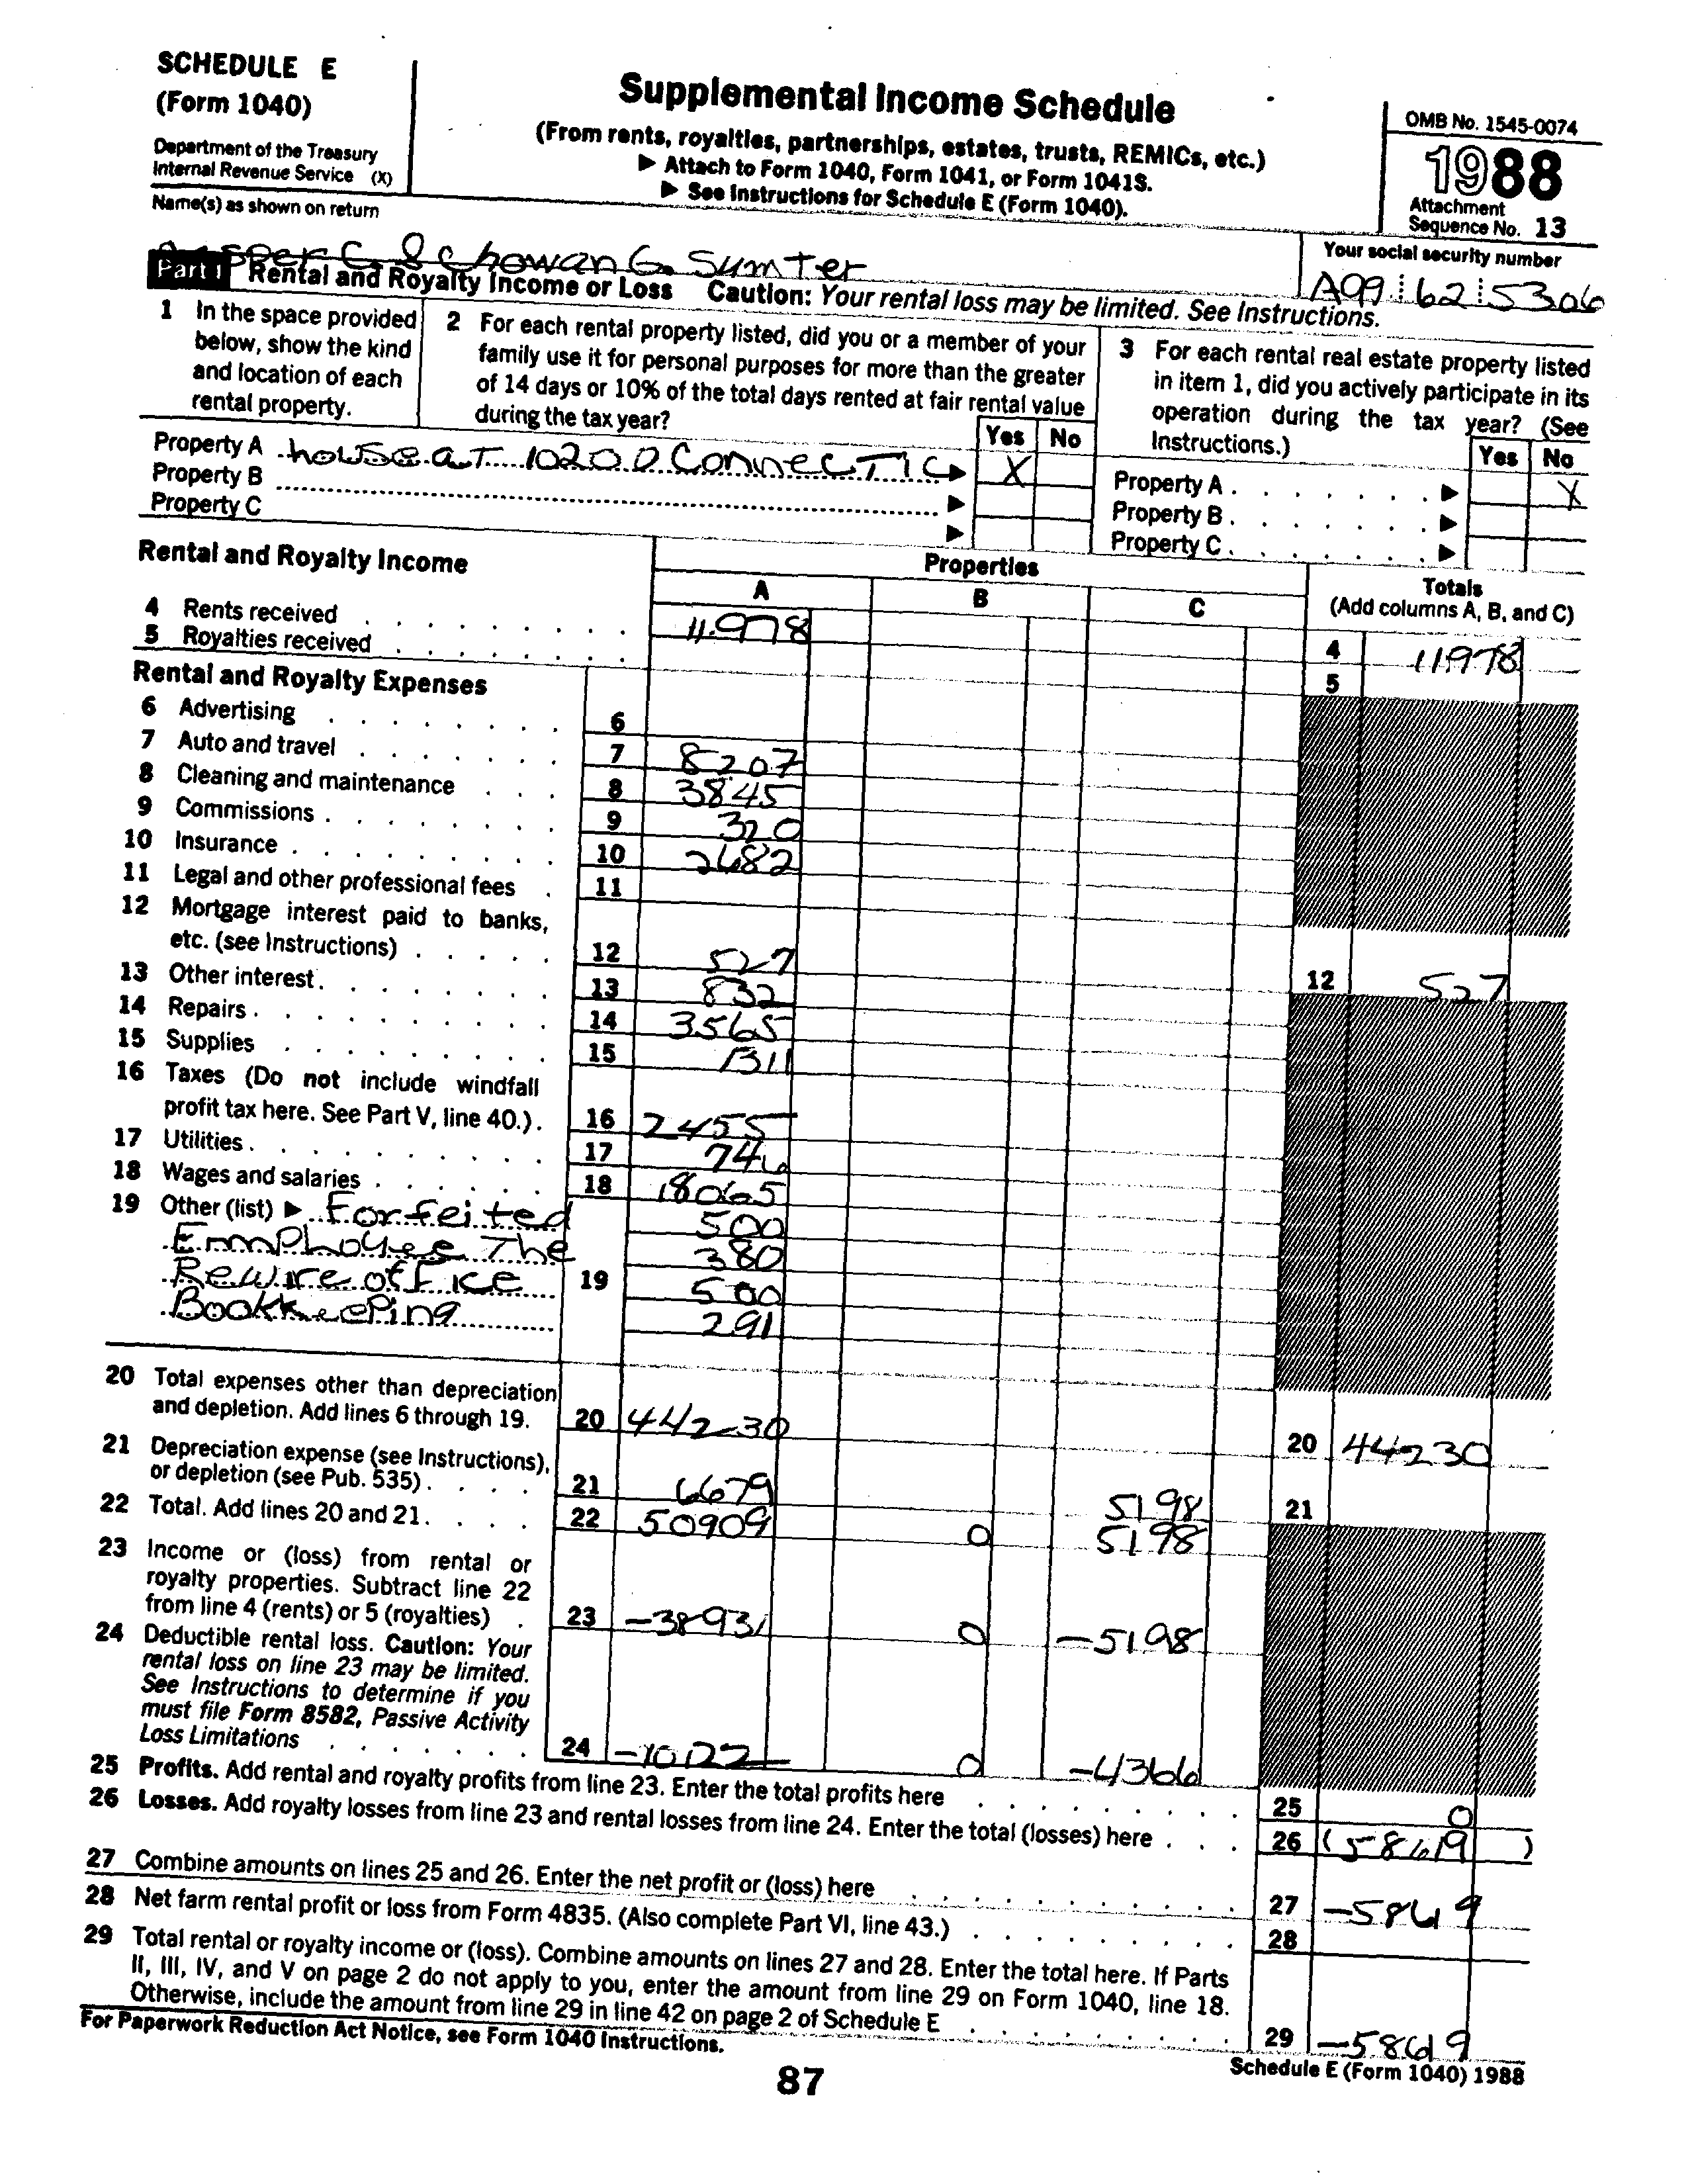 SCHEDULE E
(Form 1040)
Department of the Treasury
Internal Revenue Service (X)
Supplemental Income Schedule
(From rents, royalties, partnerships, estates, trusts, REMICs, etc.)
▶ Attach to Form 1040, Form 1041, or Form 1041S.
▶ See Instructions for Schedule E (Form 1040).
OMB No. 1545-0074
1988
Attachment
Sequence No. 13
Name(s) as shown on return
& Chowan G. Sumter
Your social security number
A99 62 5306
Part I Rental and Royalty Income or Loss Caution: Your rental loss may be limited. See Instructions.
1 In the space provided
below, show the kind
and location of each
rental property.
2 For each rental property listed, did you or a member of your
family use it for personal purposes for more than the greater
of 14 days or 10% of the total days rented at fair rental value
during the tax year?
Yes No
3 For each rental real estate property listed
in item 1, did you actively participate in its
operation during the tax year? (See
Instructions.)
Yes No
Property A house at 10200 Connectic ▶ X
Property B ▶
Property C ▶
Property A . . . . . . . ▶ X
Property B . . . . . . . ▶
Property C . . . . . . . ▶
Rental and Royalty Income
Properties
A B C
Totals
(Add columns A, B, and C)
4 Rents received 11978 4 11978
5 Royalties received 5
Rental and Royalty Expenses
6 Advertising 6
7 Auto and travel 7 8207
8 Cleaning and maintenance 8 3845
9 Commissions 9 320
10 Insurance 10 2682
11 Legal and other professional fees 11
12 Mortgage interest paid to banks,
etc. (see Instructions) 12 527 12 527
13 Other interest 13 832
14 Repairs 14 3565
15 Supplies 15 1311
16 Taxes (Do not include windfall
profit tax here. See Part V, line 40.) 16 2455
17 Utilities 17 746
18 Wages and salaries 18 18065
19 Other (list) ▶ Forfeited 500
Emplloyee The 380
Rewire office 19 500
Bookkeeping 291
20 Total expenses other than depreciation
and depletion. Add lines 6 through 19. 20 44230 20 44230
21 Depreciation expense (see Instructions),
or depletion (see Pub. 535) 21 6679 5198 21
22 Total. Add lines 20 and 21 22 50909 0 5198
23 Income or (loss) from rental or
royalty properties. Subtract line 22
from line 4 (rents) or 5 (royalties) 23 -38931 0 -5198
24 Deductible rental loss. Caution: Your
rental loss on line 23 may be limited.
See Instructions to determine if you
must file Form 8582, Passive Activity
Loss Limitations 24 -10122 0 -4366
25 Profits. Add rental and royalty profits from line 23. Enter the total profits here 25 0
26 Losses. Add royalty losses from line 23 and rental losses from line 24. Enter the total (losses) here 26 (58619)
27 Combine amounts on lines 25 and 26. Enter the net profit or (loss) here 27 -58619
28 Net farm rental profit or loss from Form 4835. (Also complete Part VI, line 43.) 28
29 Total rental or royalty income or (loss). Combine amounts on lines 27 and 28. Enter the total here. If Parts
II, III, IV, and V on page 2 do not apply to you, enter the amount from line 29 on Form 1040, line 18.
Otherwise, include the amount from line 29 in line 42 on page 2 of Schedule E 29 -58619
For Paperwork Reduction Act Notice, see Form 1040 Instructions.
Schedule E (Form 1040) 1988
87